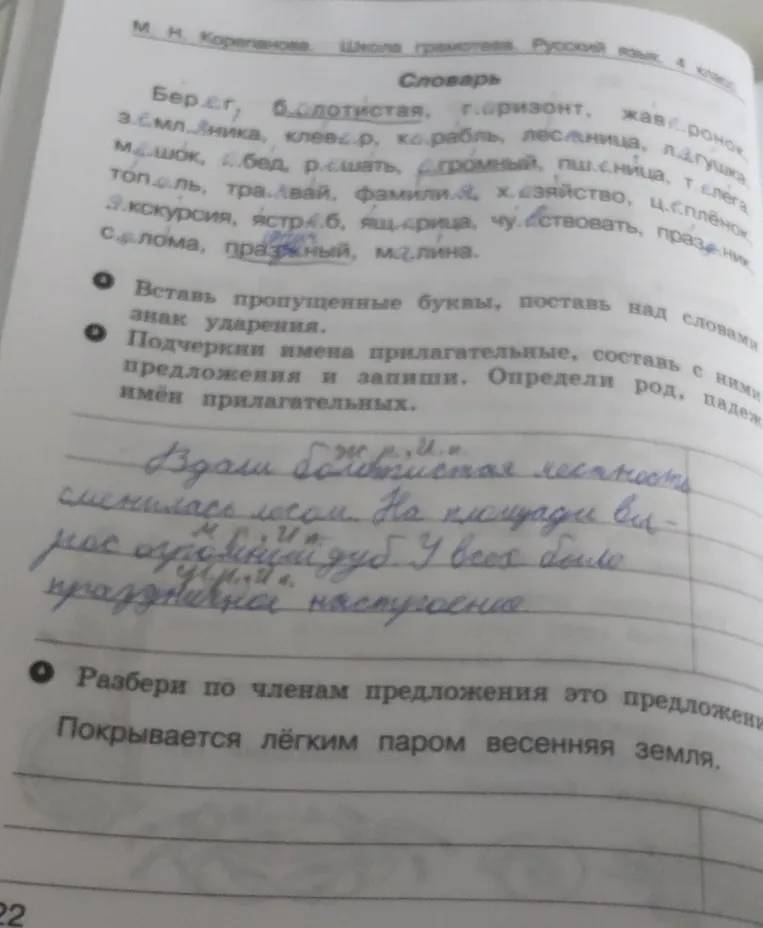 М. Н. Корепанова. Школа грамотеев. Русский язык. 4 класс
Словарь
Бер.е.г, б.о.лотистая, г.о.ризонт, жав.о.ронок,
з.е.мл.я.ника, клев.е.р, ко.рабль, лес.т.ница, л.я.гушка,
м.е.шок, .о.бед, р.е.шать, .о.громный, пш.е.ница, т.е.лега,
топ.о.ль, тра.м.вай, фамили.я, х.о.зяйство, ц.ы.плёнок,
.э.кскурсия, ястр.е.б, ящ.е.рица, чу.в.ствовать, праз.д.ник,
с.о.лома, праз ный, м.а.лина.
Вставь пропущенные буквы, поставь над словами
знак ударения.
Подчеркни имена прилагательные, составь с ними
предложения и запиши. Определи род, падеж
имён прилагательных.
ж. р., И. п.
Вдали болотистая местность
сменилась лесом. На площади вы-
м. р., И. п.
рос огромный дуб. У всех было
И. п.
праздничное настроение
Разбери по членам предложения это предложени
Покрывается лёгким паром весенняя земля.
22